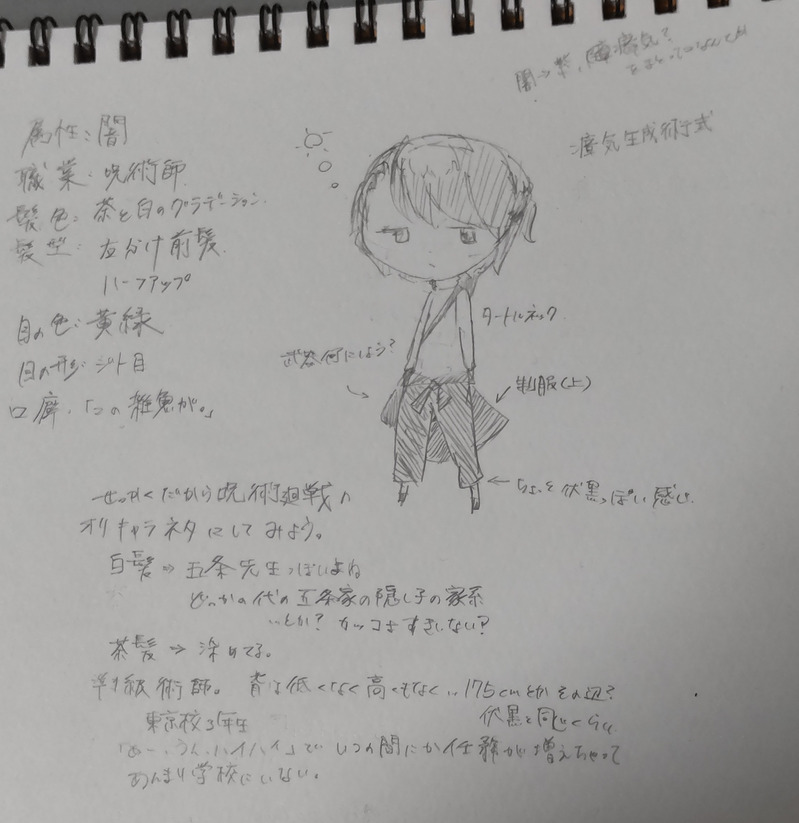 闇→紫、瘴気?
瘴気生成術式
属性:闇
職業:呪術師
髪色:茶と白のグラデーション
髪型:左分け前髪
ハーフアップ
目の色:黄緑
目の形:ジト目
口癖:「この雑魚が。」
タートルネック
武器何にしよう?
制服(上)
ちょっと伏黒っぽい感じ
せっかくだから呪術廻戦の
オリキャラネタにしてみよう。
白髪⇒五条先生っぽいよね
どっかの代の五条家の隠し子の家系
とか?カッコよすぎない?
茶髪⇒染めてる。
準1級術師。背は低くなく高くもなく…175cmとかその辺?
東京校3年生
伏黒と同じくらい
「あー、うん、ハイハイ」でいつの間にか任務が増えちゃって
あんまり学校にいない。